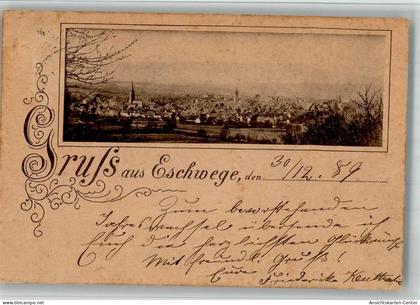 Gruß aus Eschwege, den 30/12. 89
Zum bevorstehenden
Jahreswechsel übersende ich
Euch die herzlichsten Glückwünsche
Mit freundl. Gruß!
Eure
Friederike
www.ansichtskarten-center.de
Ansichtskarten-Center